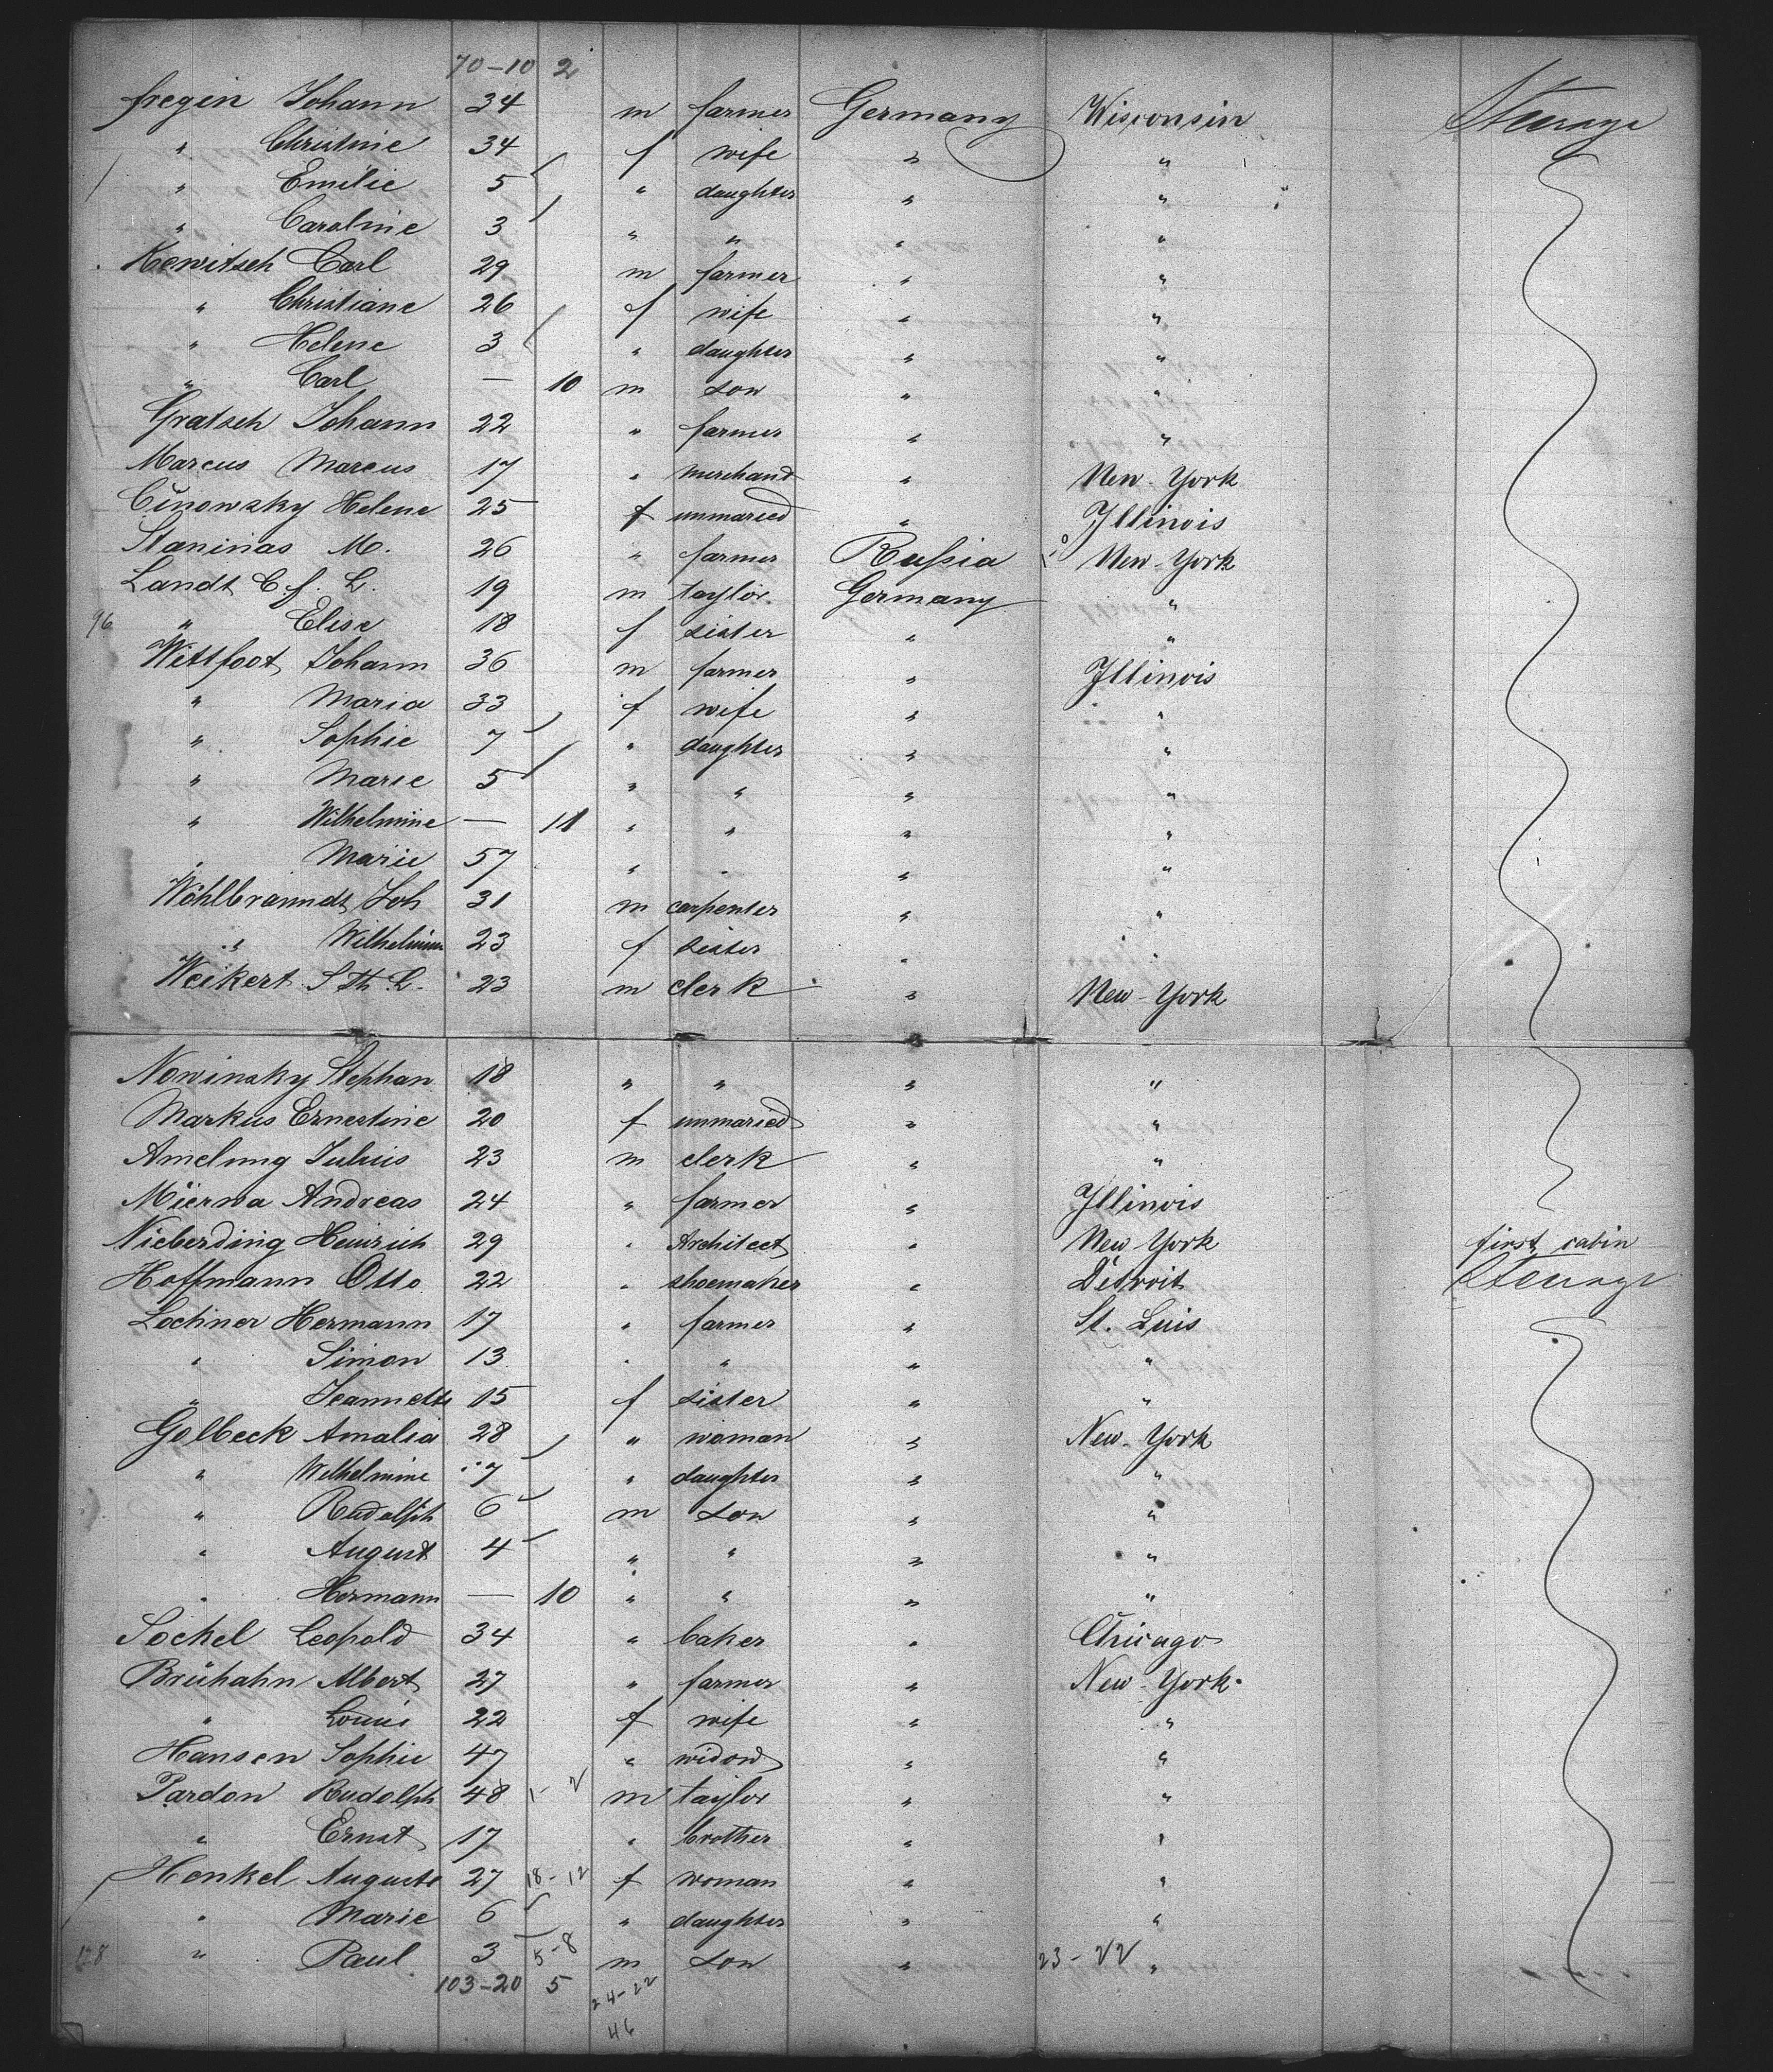 70-10 2
fregin Johann 34 m farmer Germany Wisconsin Steerage
" Christine 34 f wife " "
" Emilie 5 " daughter " "
" Caroline 3 " " " "
Kewitsch Carl 29 m farmer " "
" Christiane 26 f wife " "
" Helene 3 " daughter " "
" Carl — 10 m son " "
Gratsch Johann 22 " farmer " "
Marcus Marcus 17 " merchand " New-York
Cinowsky Helene 25 f unmaried " Illinois
Staninas M. 26 " farmer Russia New-York
Landt C. f. L. 19 m taylor Germany "
96 " Elise 18 f sister " "
Wittfoot Johann 36 m farmer " Illinois
" Maria 33 f wife " "
" Sophie 7 " daughter " "
" Marie 5 " " " "
" Wilhelmine — 11 " " " "
" Marie 57 " " " "
Wohlbranndt Joh 31 m carpenter " "
" Wilhelmine 23 f sister " "
Weikert S Th L. 23 m clerk " New-York
Nowinsky Stephan 18 " " " "
Markus Ernestine 20 f unmaried " "
Amelung Julius 23 m clerk " "
Mierwa Andreas 24 " farmer " Illinois
Nieberding Heinrich 29 " Architect " New-York first cabin
Hoffmann Otto 22 " shoemaker " Detroit Steerage
Lochner Hermann 17 " farmer " St. Luis
" Simon 13 " " " "
" Jeannette 15 f sister " "
Golbeck Amalia 28 " woman " New-York
" Wilhelmine 7 " daughter " "
" Rudolph 6 m son " "
" August 4 " " " "
" Hermann — 10 " " " "
Sockel Leopold 34 " baker " Chicago
Brühahn Albert 27 " farmer " New-York
" Louis 22 f wife " "
Hansen Sophie 47 " widow " "
Pardon Rudolph 48 1-2 m taylor " "
" Ernst 17 " brother " "
Henkel Auguste 27 18-12 f woman " "
" Marie 6 " daughter " "
128 " Paul 3 5-8 m son " 23-22 "
103-20 5 24-22
46